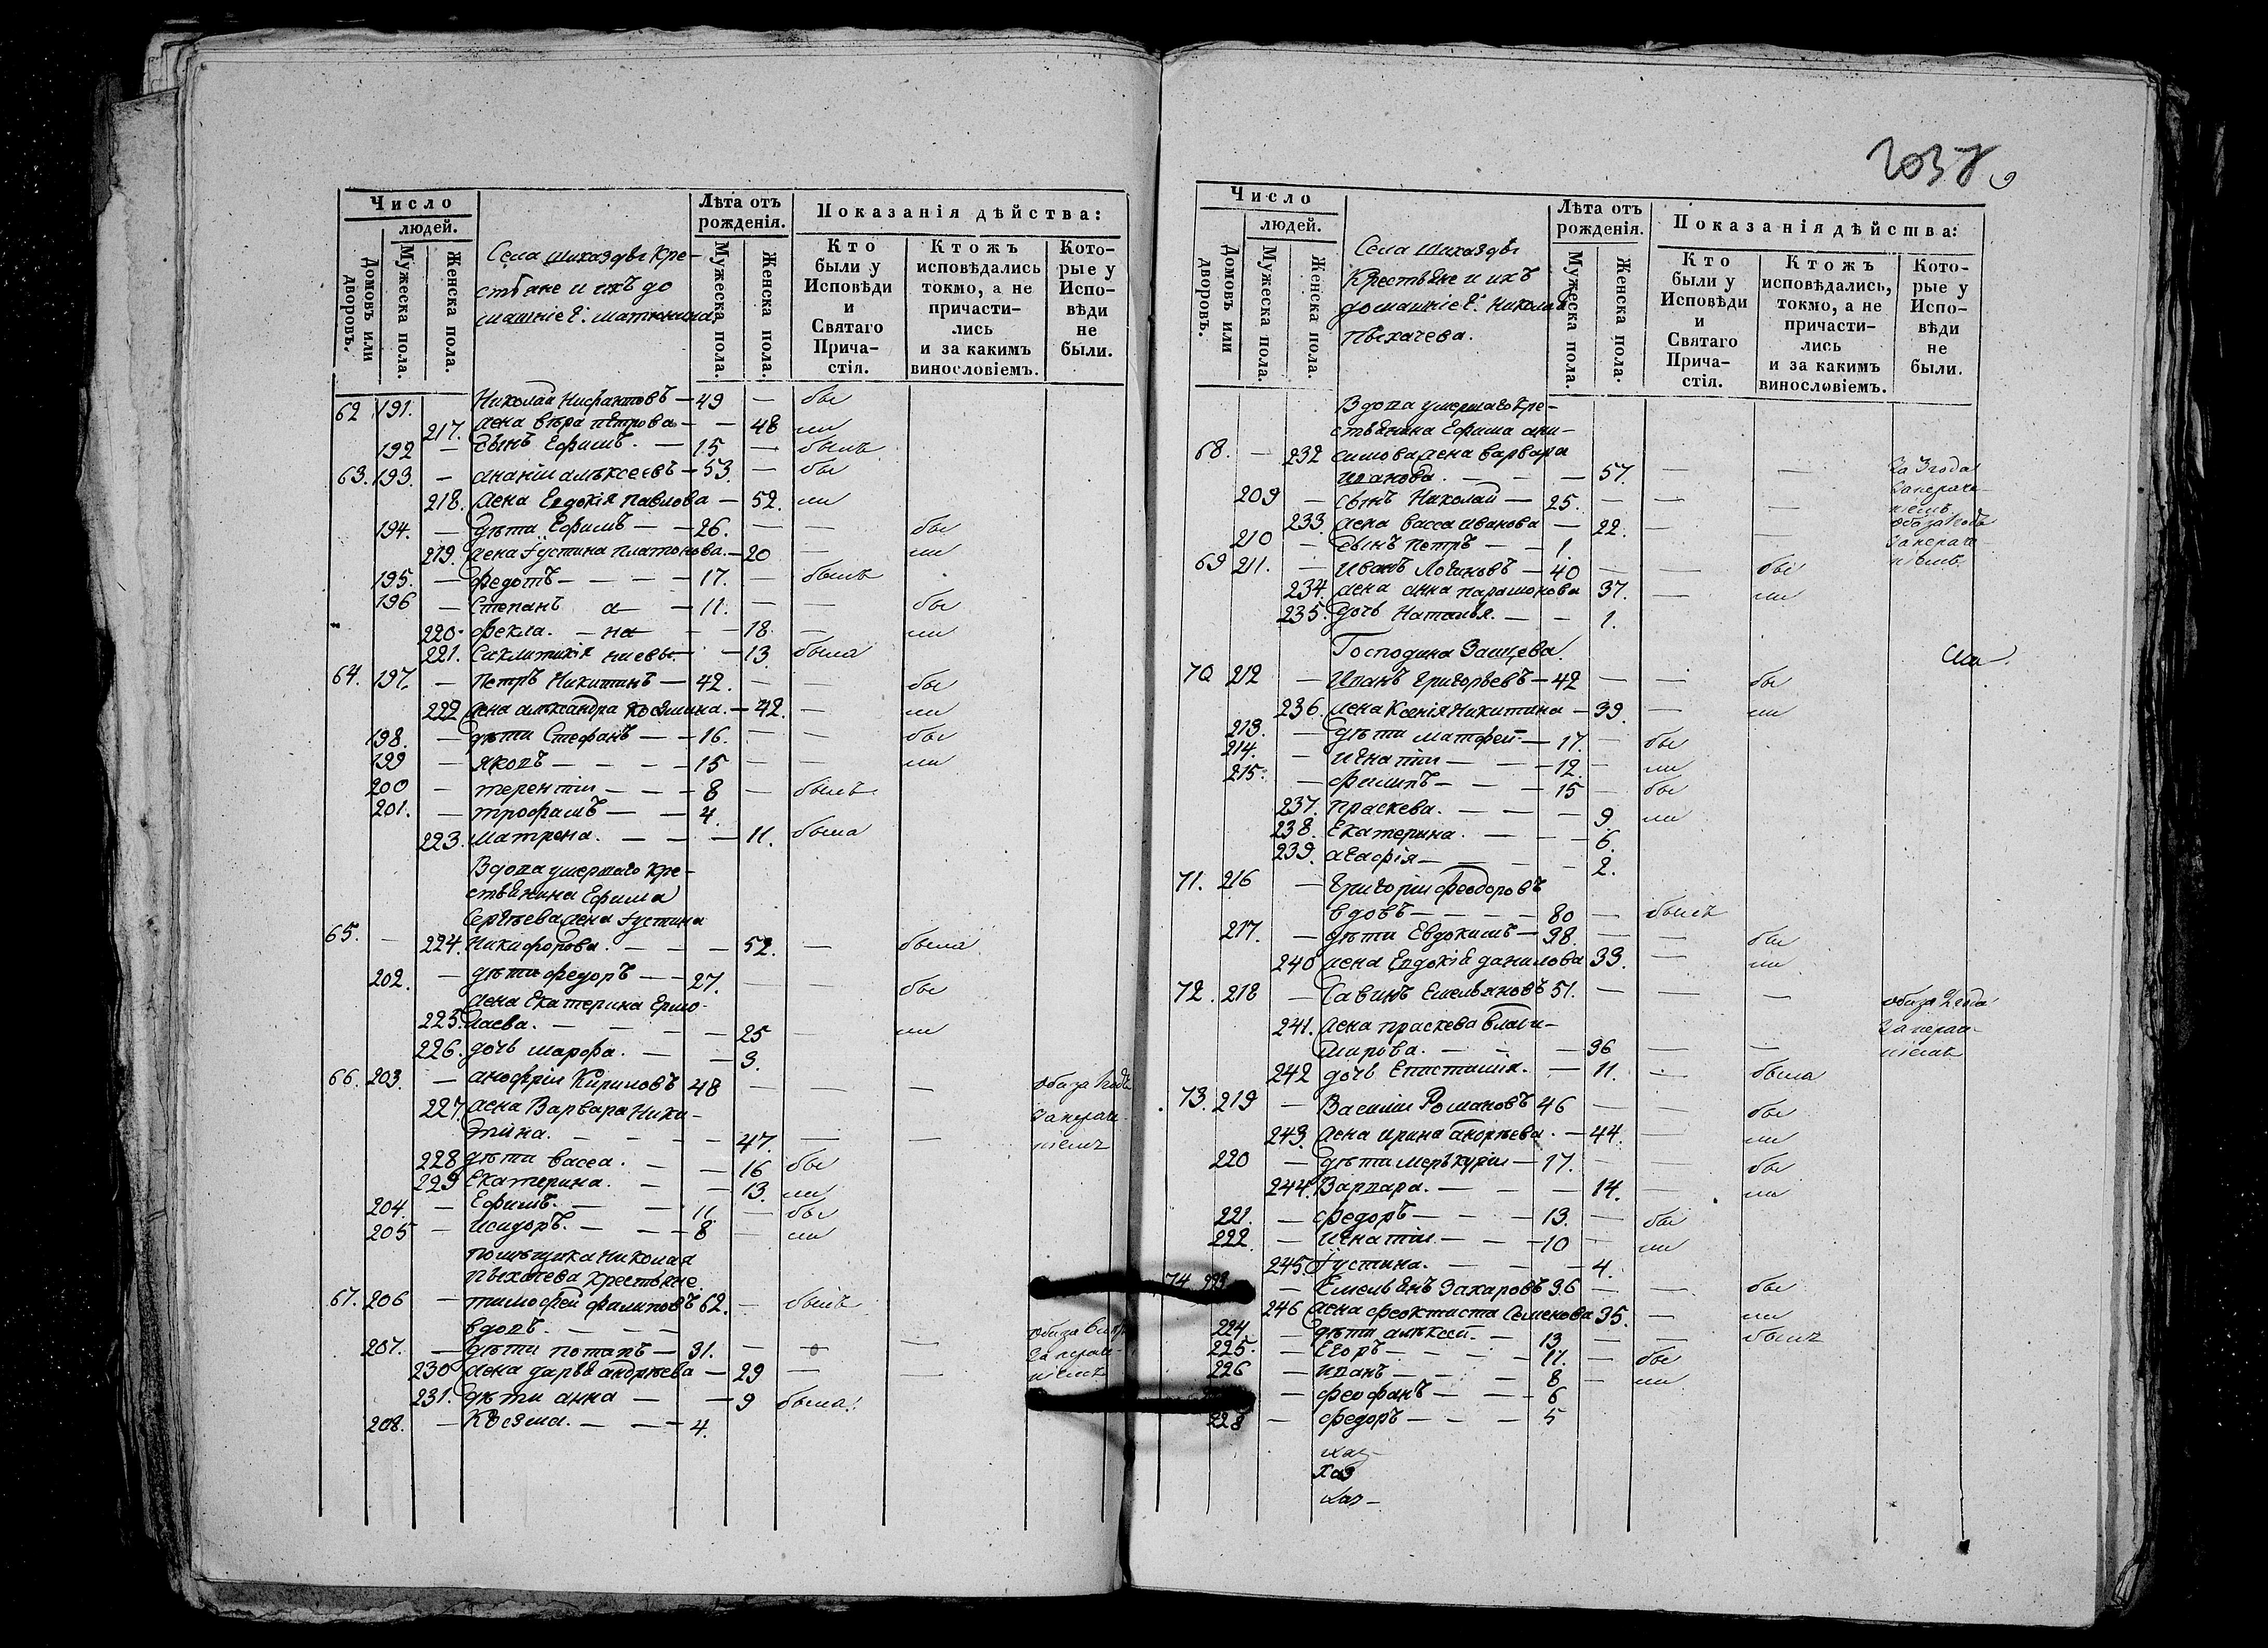 Число
людей.
Домовъ или дворовъ.
Мужеска пола.
Женска пола.
Села Шихаздъ Кре-
стьяне и ихъ до
машніе Г. Матюнина
Лѣта отъ рожденія.
Мужеска пола.
Женска пола.
Показанія дѣйства:
Кто были у Исповѣди и Святаго Прича-стія.
Ктожъ исповѣдались токмо, а не причасти-лись и за какимъ винословіемъ.
Кото-рые у Испо-вѣди не были.
62 191. Николай — 49 — бы
217. жена Вѣра Петрова — — 48 ли
192 — сынъ Ефимъ. — 15 — былъ
63. 193. — Ананіи Алѣксеевъ — 53. — бы
218. жена Евдокія Павлова — 52. ли
194. — дѣти Ефимъ — — 26. — — бы
219. жена Густина Платонова. — 20 — ли
195. — Федотъ — — — — 17. — былъ
196 — Степанъ а — — 11. — — бы
220. Фекла. — на — — 18. — ли
221. ниевы. — — 13. была
64. 197. — Петръ Никитинъ — 42. — — бы
222 жена Алѣксандра Козмина. — 42. — ли
198. — дѣти Стефанъ — — 16. — — бы
199 — Яковъ — — — — 15 — — ли
200 — Терентіи — — — 8 — былъ
201. — Трофимъ — — 4.
223. Матрена. — — — — 11. была
Вдова умершаго Кре-
стьянина Ефима
Сергѣева жена Густина
65. — 224. Никифорова. — — — 52. — была
202. — дѣти Федоръ — — 27. — — бы
жена Екатерина Ермо-
225. лаева. — — — — 25 — ли
226. дочь Марфа. — — 3.
66. 203. — Анофріи Кириловъ 48 — — — обиза
227. жена Варвара Ники-
тина. — — — — 47. — —
228 дѣти Васса. — — 16 бы
229 Екатерина. — — 13. ли
204. — Ефимъ. — — 11 — бы
205 — Исидоръ. — — 8 — ли
помѣщика Николая
Пыхачева крестьяне
67. 206 — Тимофей Филиповъ 62. — былъ
вдовъ. — — —
207. — дѣти Потапъ — 31. — — —
230 жена Дарья Андрѣева — 29 — —
231. дѣти Анна — — 9 была.
208. — Козма. — — — 4.
Число
людей.
Домовъ или дворовъ.
Мужеска пола.
Женска пола.
Села Шихаздъ
Крестьяне и ихъ
домашніе Г. Николая
Пыхачева.
Лѣта отъ рожденія.
Мужеска пола.
Женска пола.
Показанія дѣйства:
Кто были у Исповѣди и Святаго Прича-стія.
Ктожъ исповѣдались, токмо, а не причасти-лись и за какимъ винословіемъ.
Кото-рые у Испо-вѣди не были.
Вдова умершаго Кре-
стьянина Ефима Ани-
68. — 232 симова жена Варвара
Иванова. — — — 57. — — За 3 года
209 — сынъ Николай — 25. — — —
233. жена Васса Иванова — 22. — —
210 — сынъ Петръ — — 1.
69 211. — Иванъ Логиновъ — 40 — — бы
234. жена Анна Парамонова 37. — ли
235. дочь Наталья. — — 1.
Господина Защева.
70 212 — Иванъ Григорьевъ — 42 — — бы
236. жена Ксенія Никитина — 39. — ли
213. — дѣти Матфей — 17. — бы
214. — Игнатіи — — — 12. — ли
215. — Филипъ — — — 15 — бы
237. Праскева. — — — 9. ли
238. Екатерина. — — — 6.
239. Агафія — — — — 2.
71. 216 — Григоріи Феодоровъ
вдовъ — — — — 80 — былъ
217. — дѣти Евдокимъ — 38. — — бы
240 жена Евдокія Данилова 33. — ли
72. 218 — Савинъ Емельяновъ 51. — — — обиза 2 года
241. жена Праскева Влади-
мирова. — — — 36 — —
242 дочь Епистимія. — 11. — была
73. 219 — Василіи Романовъ 46 — — бы
243. жена Ирина Андрѣева. — 44. — ли
220 — дѣти Меръкуріи — 17. — — бы
244. Варвара. — — — 14. — ли
221. — Федоръ — — — 13. — бы
222 — Игнатіи. — — — 10 — ли
245. Густина. — — — 4.
74 223 — Емельянъ Захаровъ 36 — — бы
246 жена Феоктиста Семенова 35. — ли
224. — дѣти Алѣксей. — 13 — — былъ
225. — Егоръ — — — 11. — бы
226 — Иванъ — — — 8 — ли
— Феофанъ — — — 6
228 — Федоръ — — — 5